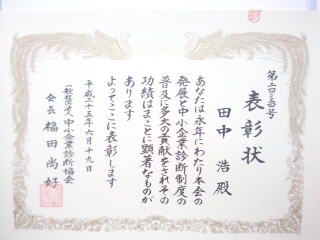 表彰状
田中 浩 殿
あなたは永年にわたり本会の
発展と中小企業診断制度の
普及に多大の貢献をされその
功績はまことに顕著なものが
あります
よってここに表彰します
平成二十五年六月十九日
一般社団法人 中小企業診断協会
会長 福田 尚好